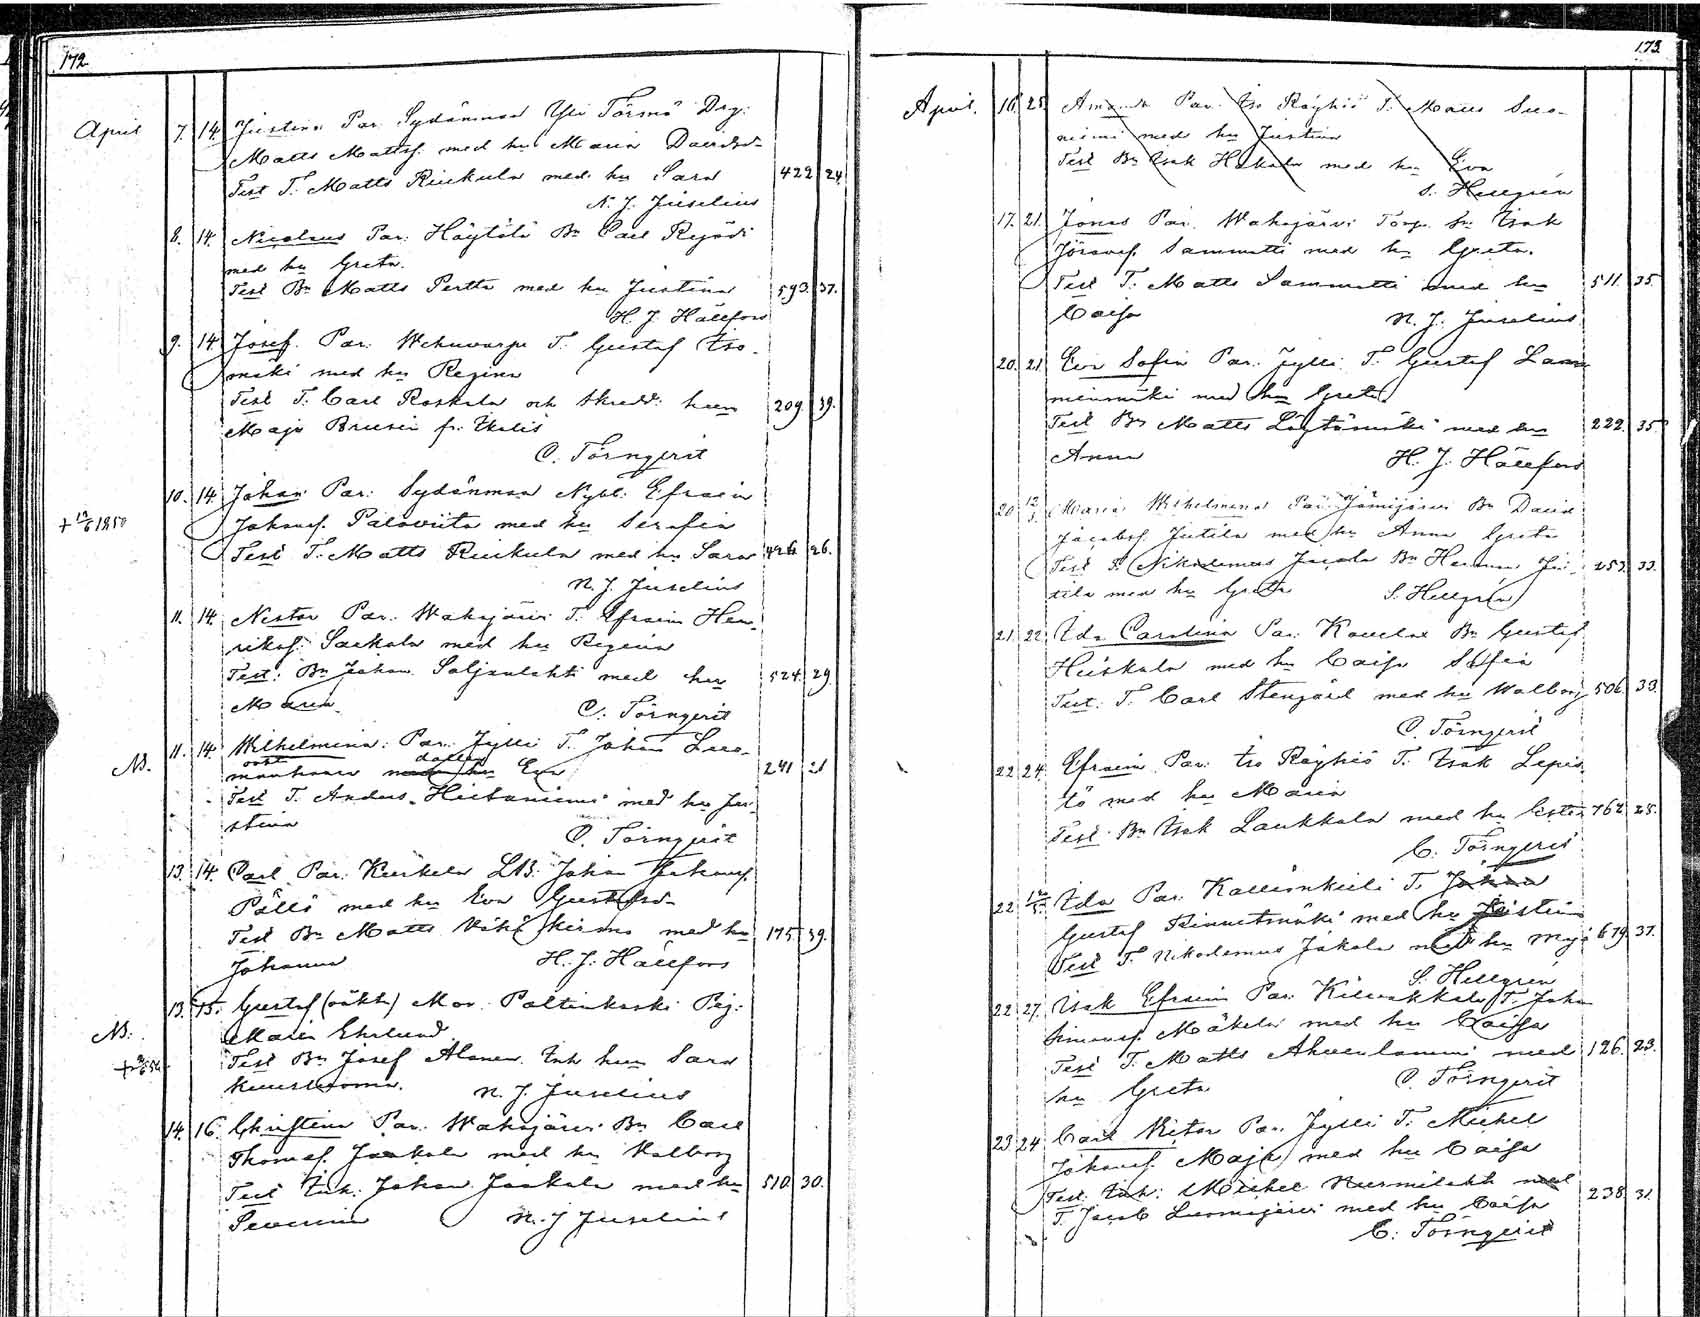 172.
April 7. 14. Justina Par. Sydänmaa Yli Törmä Drg:
Matts Mattsf. med hu Maria Davidsd.
Test T. Matts Riukula med hu Sara 422 24
N. J. Juselius
8. 14. Nicolaus Par: Höytölä Bn Carl
med hu Greta.
Test Bn Matts Pertta med hu Justina 593. 37.
H. J. Hällfors
9. 14. Josef. Par: Wehuvarpe T. Gustaf Iso-
mäki med hu Regina
Test T. Carl Roskala och Skredd: hun 209. 39.
Maja Brusin fr.
C. Törnqvist
10. 14. Johan Par: Sydänmaa Nybl: Efraim
+ 12/6 1850 Johansf. Paloviita med hu Serafia
Test T. Matts Riukula med hu Sara 426. 26.
N. J. Juselius
11. 14. Nestor Par: Wahajärvi T. Efraim Hen-
riksf. Saikala med hu Regina
Test: Bn Johan Saljanlahti med hu 524. 29.
Maria C. Törnqvist
NB. 11. 14. Wilhelmina: Par: Jylli T. Johan Luo-
dotter Eva 241 21
Test T. Anders Hietaniemi med hu Ju-
stina C. Törnqvist
13. 14. Carl Par: Kuikela Johan Johansf.
Pällö med hu Eva Gustafsd.
Test Bn Matts med hu 175. 39.
Johanna H. J. Hällfors
NB. 13. 15. Gustaf (oäkta) Mor Paltinkoski Pig:
Maria Ehrlund
Test Bn Josef Alanen Enk hun Sara
N. J. Juselius
14. 16. Christina Par: Wahajärvi Bn Carl
Thomasf. Jaakola med hu Walborg
Test Johan Jaakola med hu 510. 30.
Severina N. J Juselius
173.
April. 16. 25 Amanda Par: Iso Röyhiö T. Matts Suo-
niemi med hu Justina
Test Bn Isak Hakala med hu Eva
S. Hellgrén
17. 21. Jonas Par: Wahajärvi Torp. Isak
Sammatti med hu Greta.
Test T. Matts Sammatti med hu 511. 35.
Caisa N. J. Juselius
20. 21 Eva Sofia Par: Jylli T. Gustaf Lam-
minmäki med hu Greta
Test Bn Matts med hu 222. 35
Anna H. J. Hällfors
20 12/5. Maria Wilhelmina Par: Jämijärvi Bn David
Jacobsf. Jutila med hu Anna Greta
Test T. Nikodemus Bn Herman Ju- 253. 33.
tila med hu Greta S. Hellgrén
21. 22 Ida Carolina Par: Kovelax Bn Gustaf
Heiskala med hu Caisa Sofia
Test: T. Carl Stengård med hu Walborg 506. 33.
C. Törnqvist
22 24. Efraim Par: Iso Röyhiö T. Isak Lepis-
tö med hu Maria
Test Bn Isak Laukkala med hu 762. 25.
C. Törnqvist
22 12/5. Ida Par: T. Johan
Gustaf med hu Justina
Test T. Nikodemus Jakola med hu Maja 679. 37.
S. Hellgrén
22 27. Isak Efraim Par: T. Johan
Simonsf. Mäkelä med hu Caisa
Test T. Matts Ahvenlammi med 126. 23.
hu Greta C. Törnqvist
23 24. Carl Victor Par: Jylli T. Michel
Johansf. Maja med hu Caisa
Test: Michel Nurmilahti med
T. Jacob Luomajärvi med hu Caisa 238 31.
C. Törnqvist